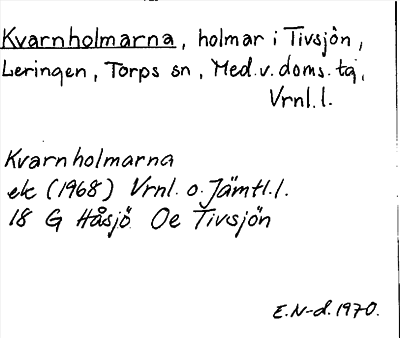 Kvarnholmarna, holmar i Tivsjön,
Leringen, Torps sn, Med.v.doms.tg,
Vrnl.l.
Kvarnholmarna
ek (1968) Vrnl. o. Jämtl.l.
18 G Håsjö Oe Tivsjön
E.N-d. 1970.